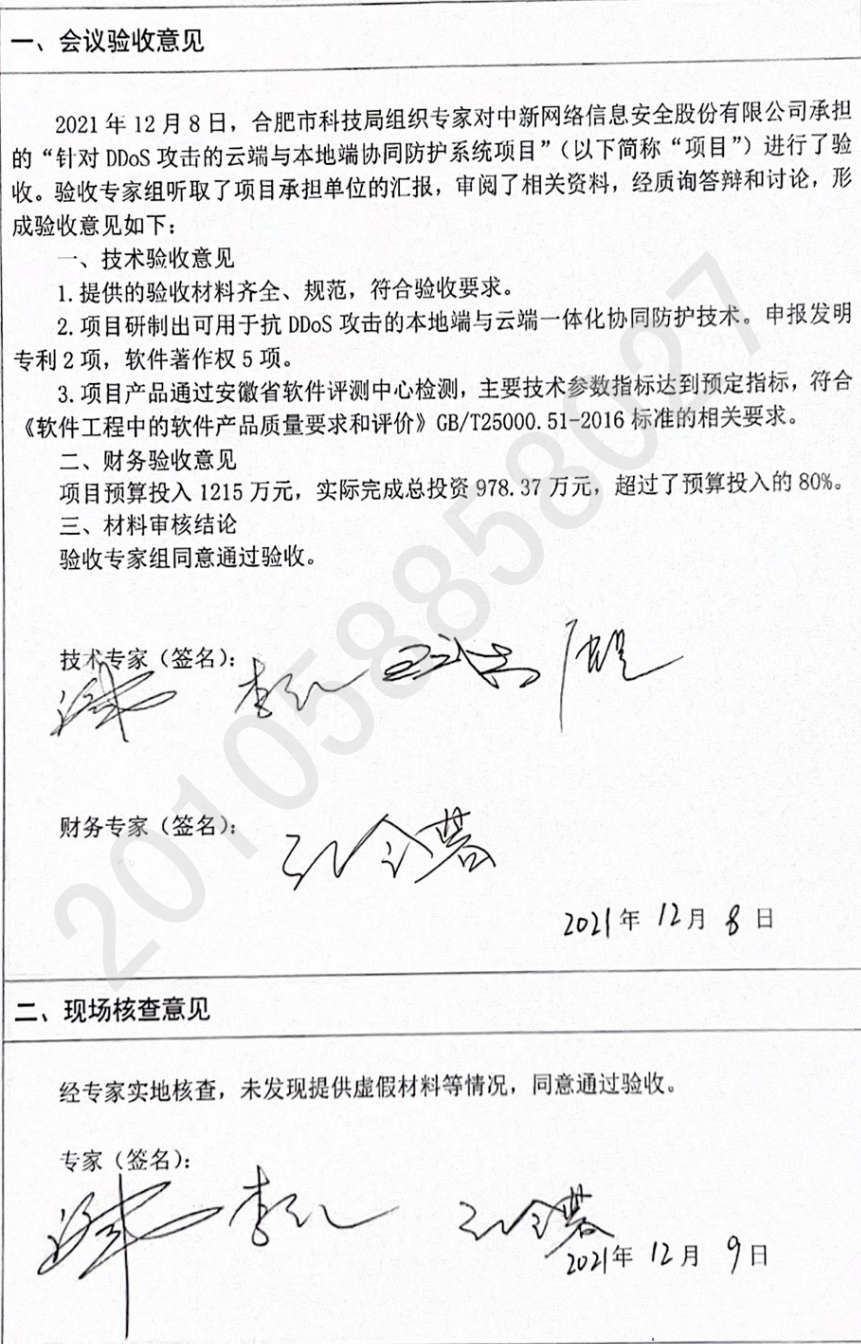 一、会议验收意见
2021年12月8日，合肥市科技局组织专家对中新网络信息安全股份有限公司承担
的“针对DDoS攻击的云端与本地端协同防护系统项目”（以下简称“项目”）进行了验
收。验收专家组听取了项目承担单位的汇报，审阅了相关资料，经质询答辩和讨论，形
成验收意见如下：
一、技术验收意见
1.提供的验收材料齐全、规范，符合验收要求。
2.项目研制出可用于抗DDoS攻击的本地端与云端一体化协同防护技术。申报发明
专利2项，软件著作权5项。
3.项目产品通过安徽省软件评测中心检测，主要技术参数指标达到预定指标，符合
《软件工程中的软件产品质量要求和评价》GB/T25000.51-2016标准的相关要求。
二、财务验收意见
项目预算投入1215万元，实际完成总投资978.37万元，超过了预算投入的80%。
三、材料审核结论
验收专家组同意通过验收。
技术专家（签名）：
财务专家（签名）：
2021年12月8日
二、现场核查意见
经专家实地核查，未发现提供虚假材料等情况，同意通过验收。
专家（签名）：
2021年12月9日
201058858027